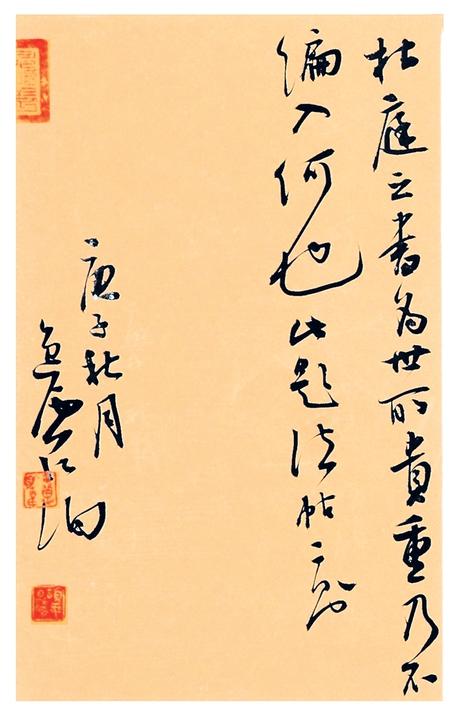 杜庭之書為世所貴重乃不
编入何也此题法帖
庚子秋月